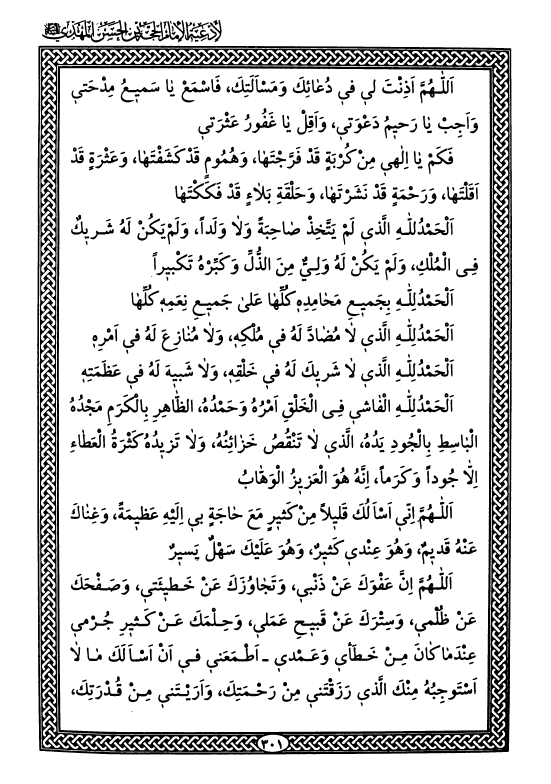 لأدعية الإمام الحجة بن الحسن المهدي
اَللّٰهُمَّ اَذِنْتَ لي في دُعٰائِكَ وَمَسْاَلَتِكَ، فَاسْمَعْ يٰا سَميعُ مِدْحَتي
وَاَجِبْ يٰا رَحيمُ دَعْوَتي، وَاَقِلْ يٰا غَفُورُ عَثْرَتي
فَكَمْ يٰا اِلٰهي مِنْ كُرْبَةٍ قَدْ فَرَّجْتَهٰا، وَهُمُومٍ قَدْ كَشَفْتَهٰا، وَعَثْرَةٍ قَدْ
اَقَلْتَهٰا، وَرَحْمَةٍ قَدْ نَشَرْتَهٰا، وَحَلْقَةِ بَلٰاءٍ قَدْ فَكَكْتَهٰا
اَلْحَمْدُلِلّٰهِ الَّذي لَمْ يَتَّخِذْ صٰاحِبَةً وَلٰا وَلَداً، وَلَمْ يَكُنْ لَهُ شَريكٌ
فِي الْمُلْكِ، وَلَمْ يَكُنْ لَهُ وَلِيٌّ مِنَ الذُّلِّ وَكَبِّرْهُ تَكْبيراً
اَلْحَمْدُلِلّٰهِ بِجَميعِ مَحٰامِدِهِ كُلِّهٰا عَلىٰ جَميعِ نِعَمِهِ كُلِّهٰا
اَلْحَمْدُلِلّٰهِ الَّذي لٰا مُضٰادَّ لَهُ في مُلْكِهِ، وَلٰا مُنٰازِعَ لَهُ في اَمْرِهِ
اَلْحَمْدُلِلّٰهِ الَّذي لٰا شَريكَ لَهُ في خَلْقِهِ، وَلٰا شَبيهَ لَهُ في عَظَمَتِهِ
اَلْحَمْدُلِلّٰهِ الْفٰاشي فِي الْخَلْقِ اَمْرُهُ وَحَمْدُهُ، الظّٰاهِرِ بِالْكَرَمِ مَجْدُهُ
الْبٰاسِطِ بِالْجُودِ يَدُهُ، الَّذي لٰا تَنْقُصُ خَزٰائِنُهُ، وَلٰا تَزيدُهُ كَثْرَةُ الْعَطٰاءِ
اِلّٰا جُوداً وَكَرَماً، اِنَّهُ هُوَ الْعَزيزُ الْوَهّٰابُ
اَللّٰهُمَّ اِنّي اَسْاَلُكَ قَليلاً مِنْ كَثيرٍ مَعَ حٰاجَةٍ بي اِلَيْهِ عَظيمَةً، وَغِنٰاكَ
عَنْهُ قَديمٌ، وَهُوَ عِنْدي كَثيرٌ، وَهُوَ عَلَيْكَ سَهْلٌ يَسيرٌ
اَللّٰهُمَّ اِنَّ عَفْوَكَ عَنْ ذَنْبي، وَتَجٰاوُزَكَ عَنْ خَطيئَتي، وَصَفْحَكَ
عَنْ ظُلْمي، وَسِتْرَكَ عَنْ قَبيحِ عَمَلي، وَحِلْمَكَ عَنْ كَثيرِ جُرْمي
عِنْدَمٰا كٰانَ مِنْ خَطَأي وَعَمْدي ـ اَطْمَعَني في اَنْ اَسْاَلَكَ مٰا لٰا
اَسْتَوْجِبُهُ مِنْكَ الَّذي رَزَقْتَني مِنْ رَحْمَتِكَ، وَاَرَيْتَني مِنْ قُدْرَتِكَ،
٣٠١